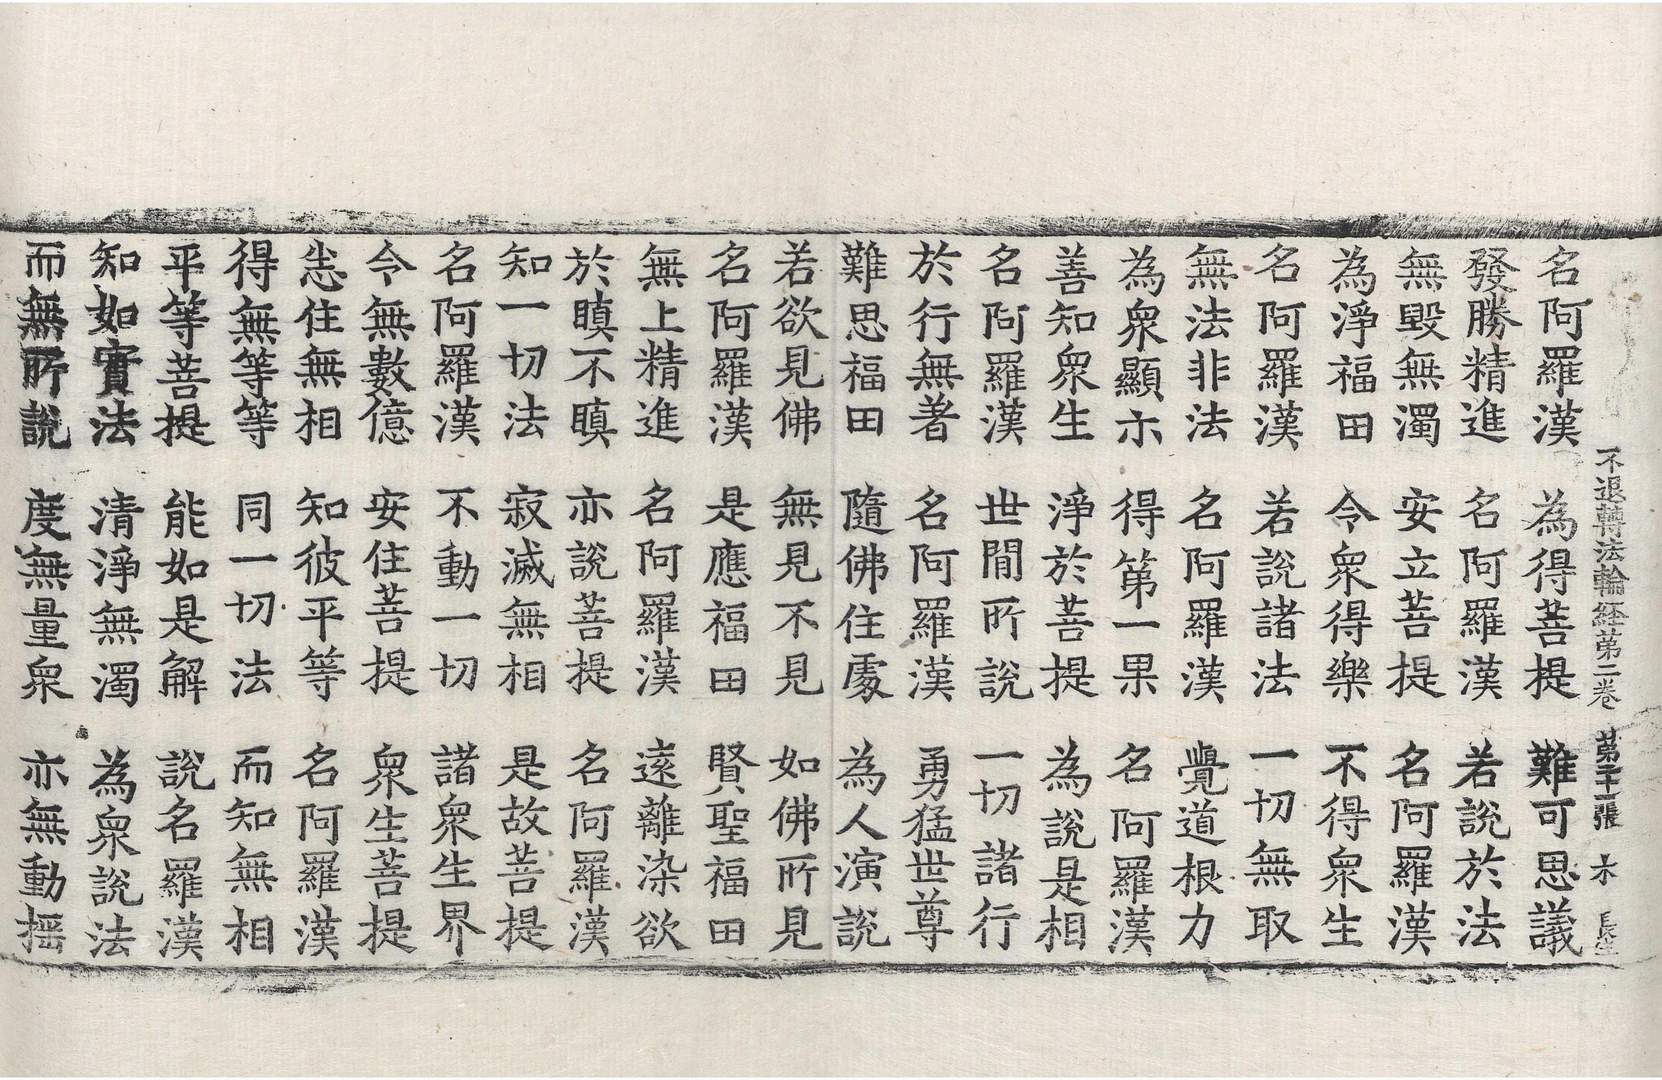 不退轉法輪経第二卷 第二十一張 木 長生
名阿羅漢 為得菩提 難可思議
發勝精進 名阿羅漢 若說於法
無毀無濁 安立菩提 名阿羅漢
為淨福田 令衆得樂 不得衆生
名阿羅漢 若說諸法 一切無取
無法非法 名阿羅漢 覺道根力
為衆顯示 得第一果 名阿羅漢
善知衆生 淨於菩提 為說是相
名阿羅漢 世間所說 一切諸行
於行無著 名阿羅漢 勇猛世尊
難思福田 隨佛住處 為人演說
若欲見佛 無見不見 如佛所見
名阿羅漢 是應福田 賢聖福田
無上精進 名阿羅漢 遠離染欲
於瞋不瞋 亦說菩提 名阿羅漢
知一切法 寂滅無相 是故菩提
名阿羅漢 不動一切 諸衆生界
令無數億 安住菩提 衆生菩提
悉住無相 知彼平等 名阿羅漢
得無等等 同一切法 而知無相
平等菩提 能如是解 說名羅漢
知如實法 清淨無濁 為衆說法
而無所說 度無量衆 亦無動搖